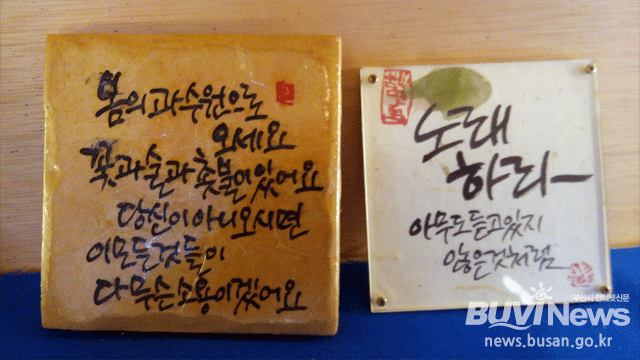 봄의 과수원으로
오세요
꽃과 술과 촛불이 있어요
당신이 아니 오시면
이 모든 것들이
다 무슨 소용이겠어요
노래
하라
아무도 듣고 있지
않은 것처럼
부산시 인터넷신문
BUVI News
news.busan.go.kr